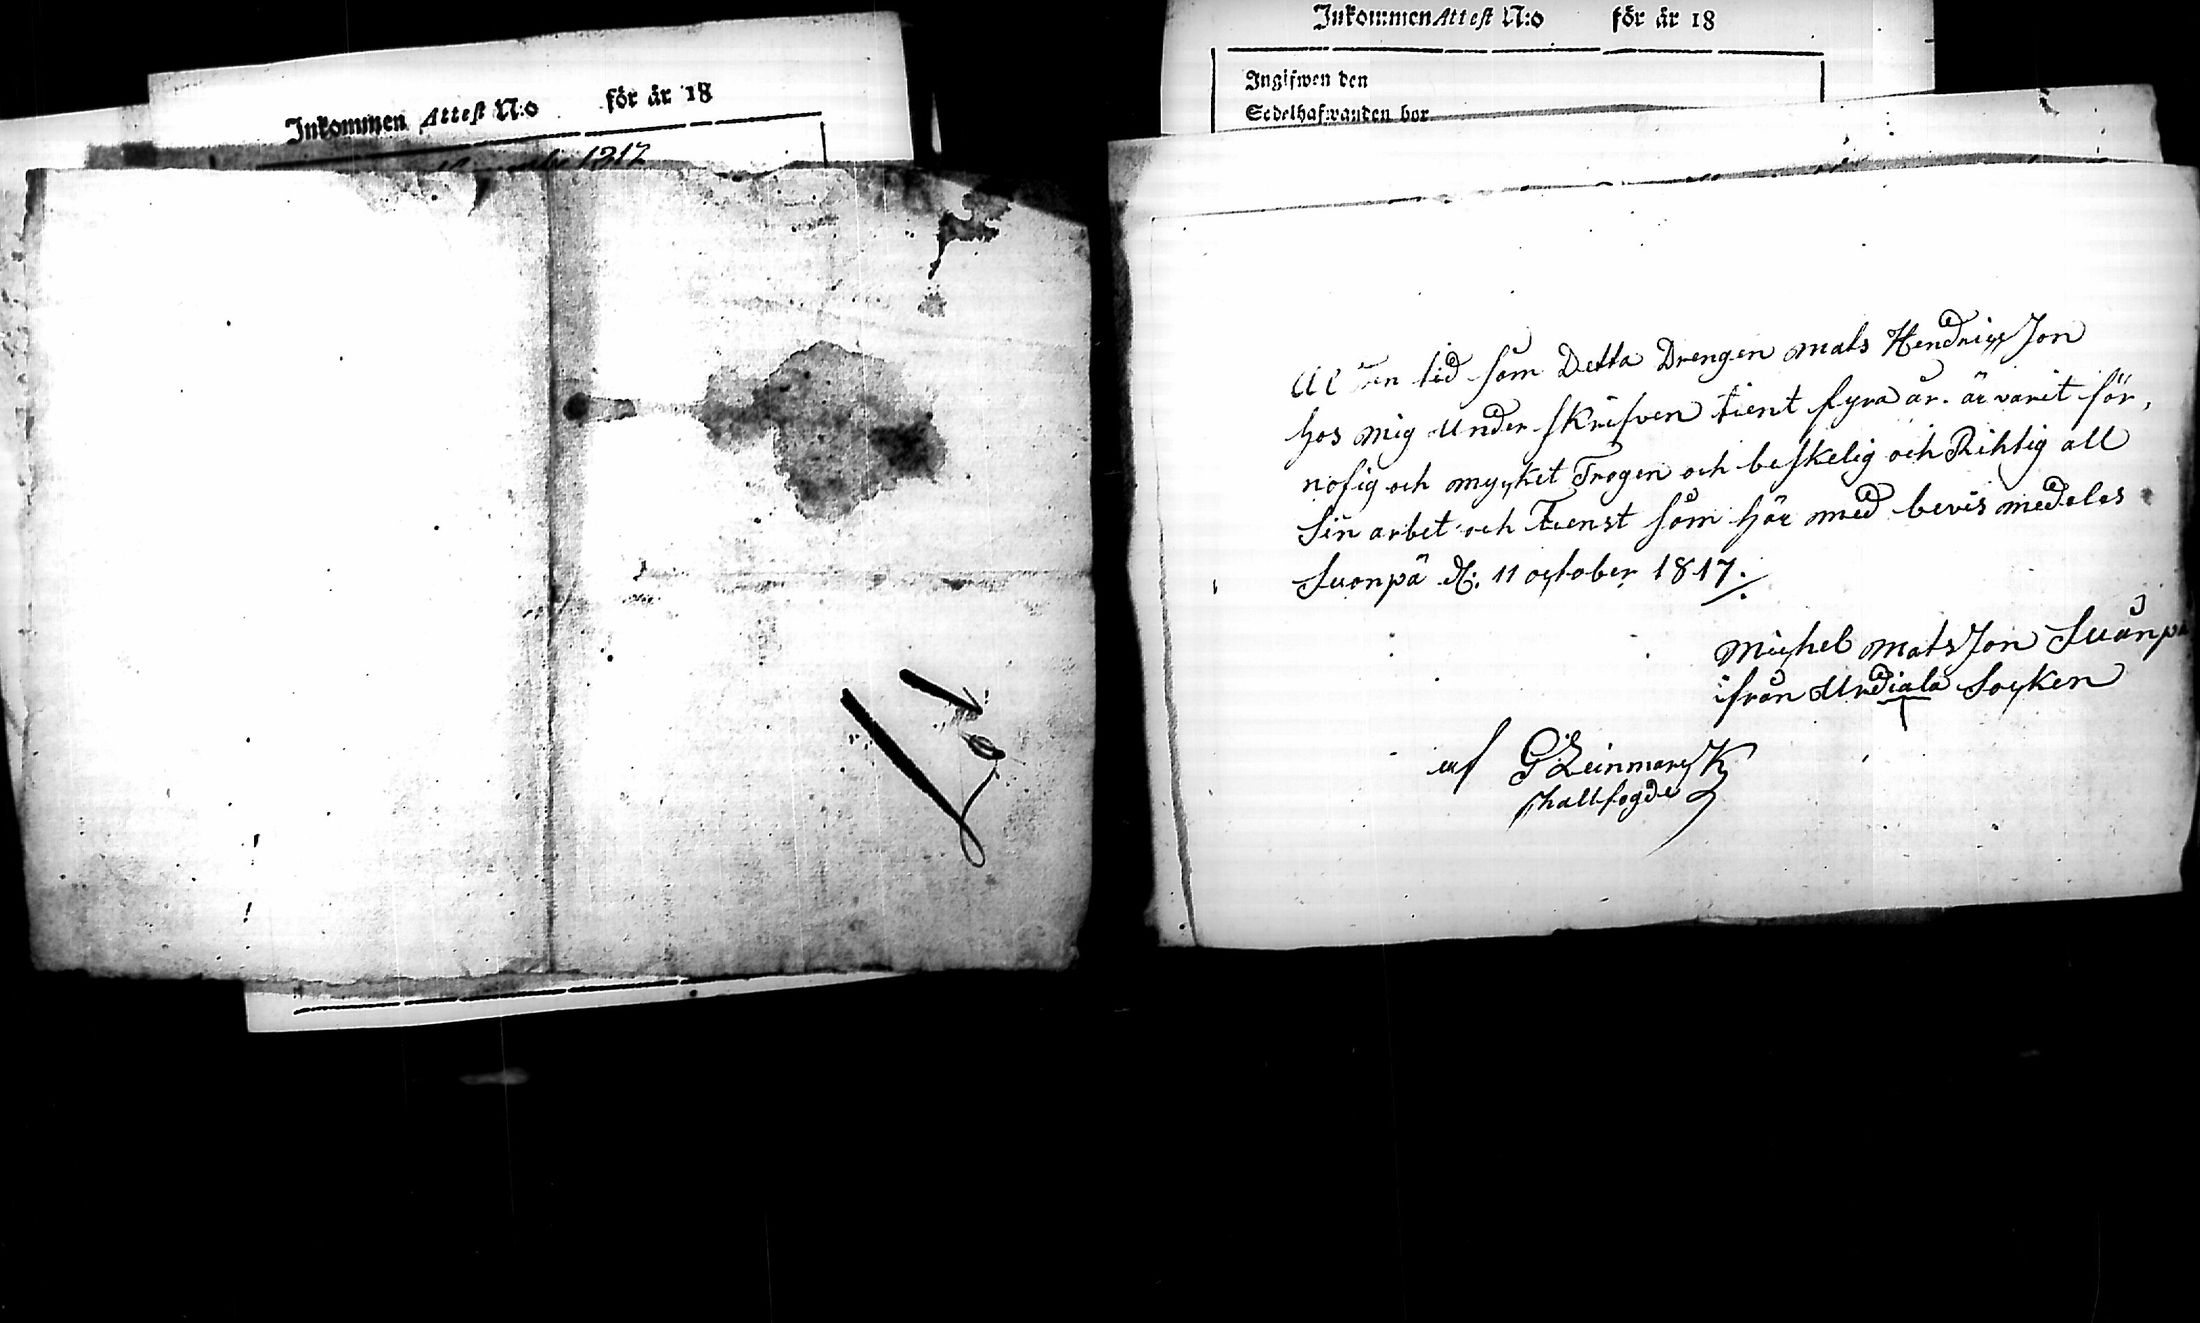 Inkommen Attest N:o för år 18
1817
Inkommen Attest N:o för år 18
Ingifwen den
Sedelhafwanden bor
tid som Detta Drengen mats Hendrigsson
hos mig under skrifven tient fyra år. är varit för,
nöfig och mycket Trogen och beskelig och Rihtig all
Sin arbet och Tienst som här med bevis medeles
Suonpä d: 11 october 1817.
Michel Matsson Suånpä
ifrån Urdiala Socken
af G